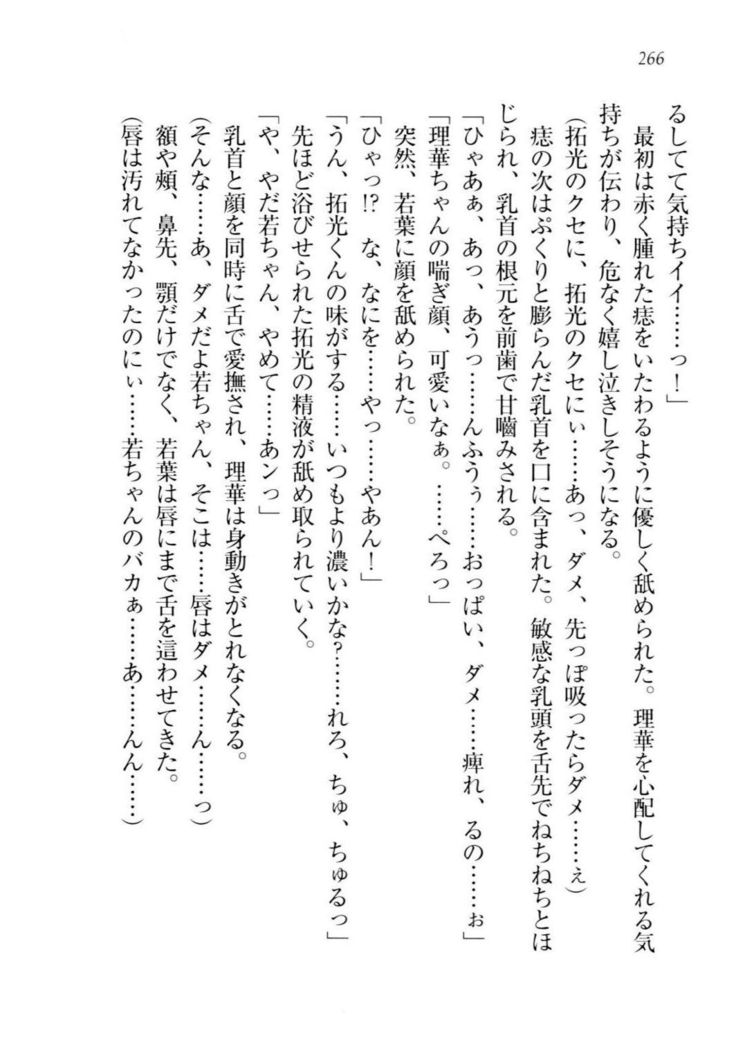 266
るしてて気持ちイイ……っ！」
最初は赤く腫れた痣をいたわるように優しく舐められた。理華を心配してくれる気
持ちが伝わり、危なく嬉し泣きしそうになる。
（拓光のクセに、拓光のクセにぃ……あっ、ダメ、先っぽ吸ったらダメ……ぇ）
痣の次はぷくりと膨らんだ乳首を口に含まれた。敏感な乳頭を舌先でねちねちとほ
じられ、乳首の根元を前歯で甘嚙みされる。
「ひゃあぁ、あっ、あうっ……んふうぅ……おっぱい、ダメ……痺れ、るの……ぉ」
「理華ちゃんの喘ぎ顔、可愛いなぁ。……ぺろっ」
突然、若葉に顔を舐められた。
「ひゃっ!?　な、なにを……やっ……やあん！」
「うん、拓光くんの味がする……いつもより濃いかな？……れろ、ちゅ、ちゅるっ」
先ほど浴びせられた拓光の精液が舐め取られていく。
「や、やだ若ちゃん、やめて……あンっ」
乳首と顔を同時に舌で愛撫され、理華は身動きがとれなくなる。
（そんな……あ、ダメだよ若ちゃん、そこは……唇はダメ……ん……っ）
額や頰、鼻先、顎だけでなく、若葉は唇にまで舌を這わせてきた。
（唇は汚れてなかったのにぃ……若ちゃんのバカぁ……あ……んん……）